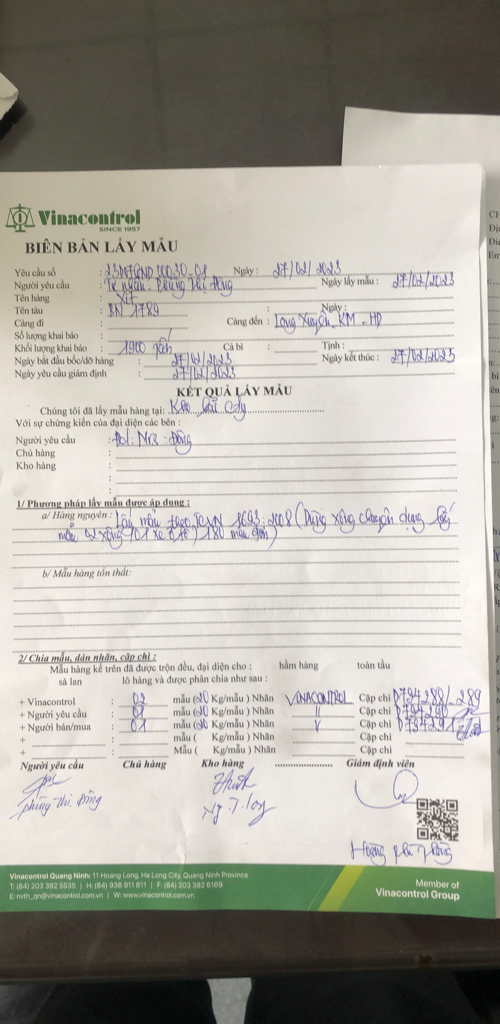 Vinacontrol
SINCE 1957
BIÊN BẢN LẤY MẪU
Yêu cầu số : Ngày : 27/02/2023
Người yêu cầu : Ngày lấy mẫu : 27/02/2023
Tên hàng : Xít
Tên tàu : BN 1789 Ngày :
Cảng đi : Cảng đến : Long Xuyên - KM - HD
Số lượng khai báo : /
Khối lượng khai báo : 1900 tấn Cả bì : Tịnh :
Ngày bắt đầu bốc/dỡ hàng : 27/02/2023 Ngày kết thúc : 27/02/2023
Ngày yêu cầu giám định : 27/02/2023
KẾT QUẢ LẤY MẪU
Chúng tôi đã lấy mẫu hàng tại: Kho
Với sự chứng kiến của đại diện các bên :
Người yêu cầu : Mrs. Đông
Chủ hàng :
Kho hàng :
1/ Phương pháp lấy mẫu được áp dụng :
a/ Hàng nguyên : Lấy mẫu theo TCVN 1693: 2008 (Dùng xẻng chuyên dụng lấy
mẫu 180 mẫu đơn)
b/ Mẫu hàng tổn thất:
2/ Chia mẫu, dán nhãn, cặp chì :
Mẫu hàng kể trên đã được trộn đều, đại diện cho : hầm hàng toàn tàu
sà lan lô hàng và được phân chia như sau :
+ Vinacontrol : 02 mẫu (20 Kg/mẫu ) Nhãn VINACONTROL Cặp chì
+ Người yêu cầu : 01 mẫu (20 Kg/mẫu ) Nhãn Cặp chì
+ Người bán/mua : 01 mẫu (20 Kg/mẫu ) Nhãn Cặp chì
+ : mẫu ( Kg/mẫu ) Nhãn Cặp chì
+ : Mẫu ( Kg/mẫu ) Nhãn Cặp chì
Người yêu cầu Chủ hàng Kho hàng Giám định viên
Phùng Thị Đông
Vinacontrol Quang Ninh: 11 Hoang Long, Ha Long City, Quang Ninh Province
T: (84) 203 382 5535 | H: (84) 936 911 811 | F: (84) 203 382 6169
E: nvth_qn@vinacontrol.com.vn | W: www.vinacontrol.com.vn
Member of
Vinacontrol Group